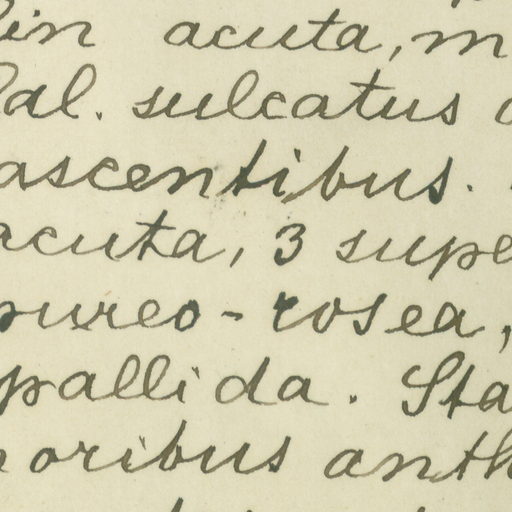 lin acuta, m
Cal. sulcatus
ascentibus.
acuta, 3 supe
pureo-rosea,
pallida. Sta
oribus anth